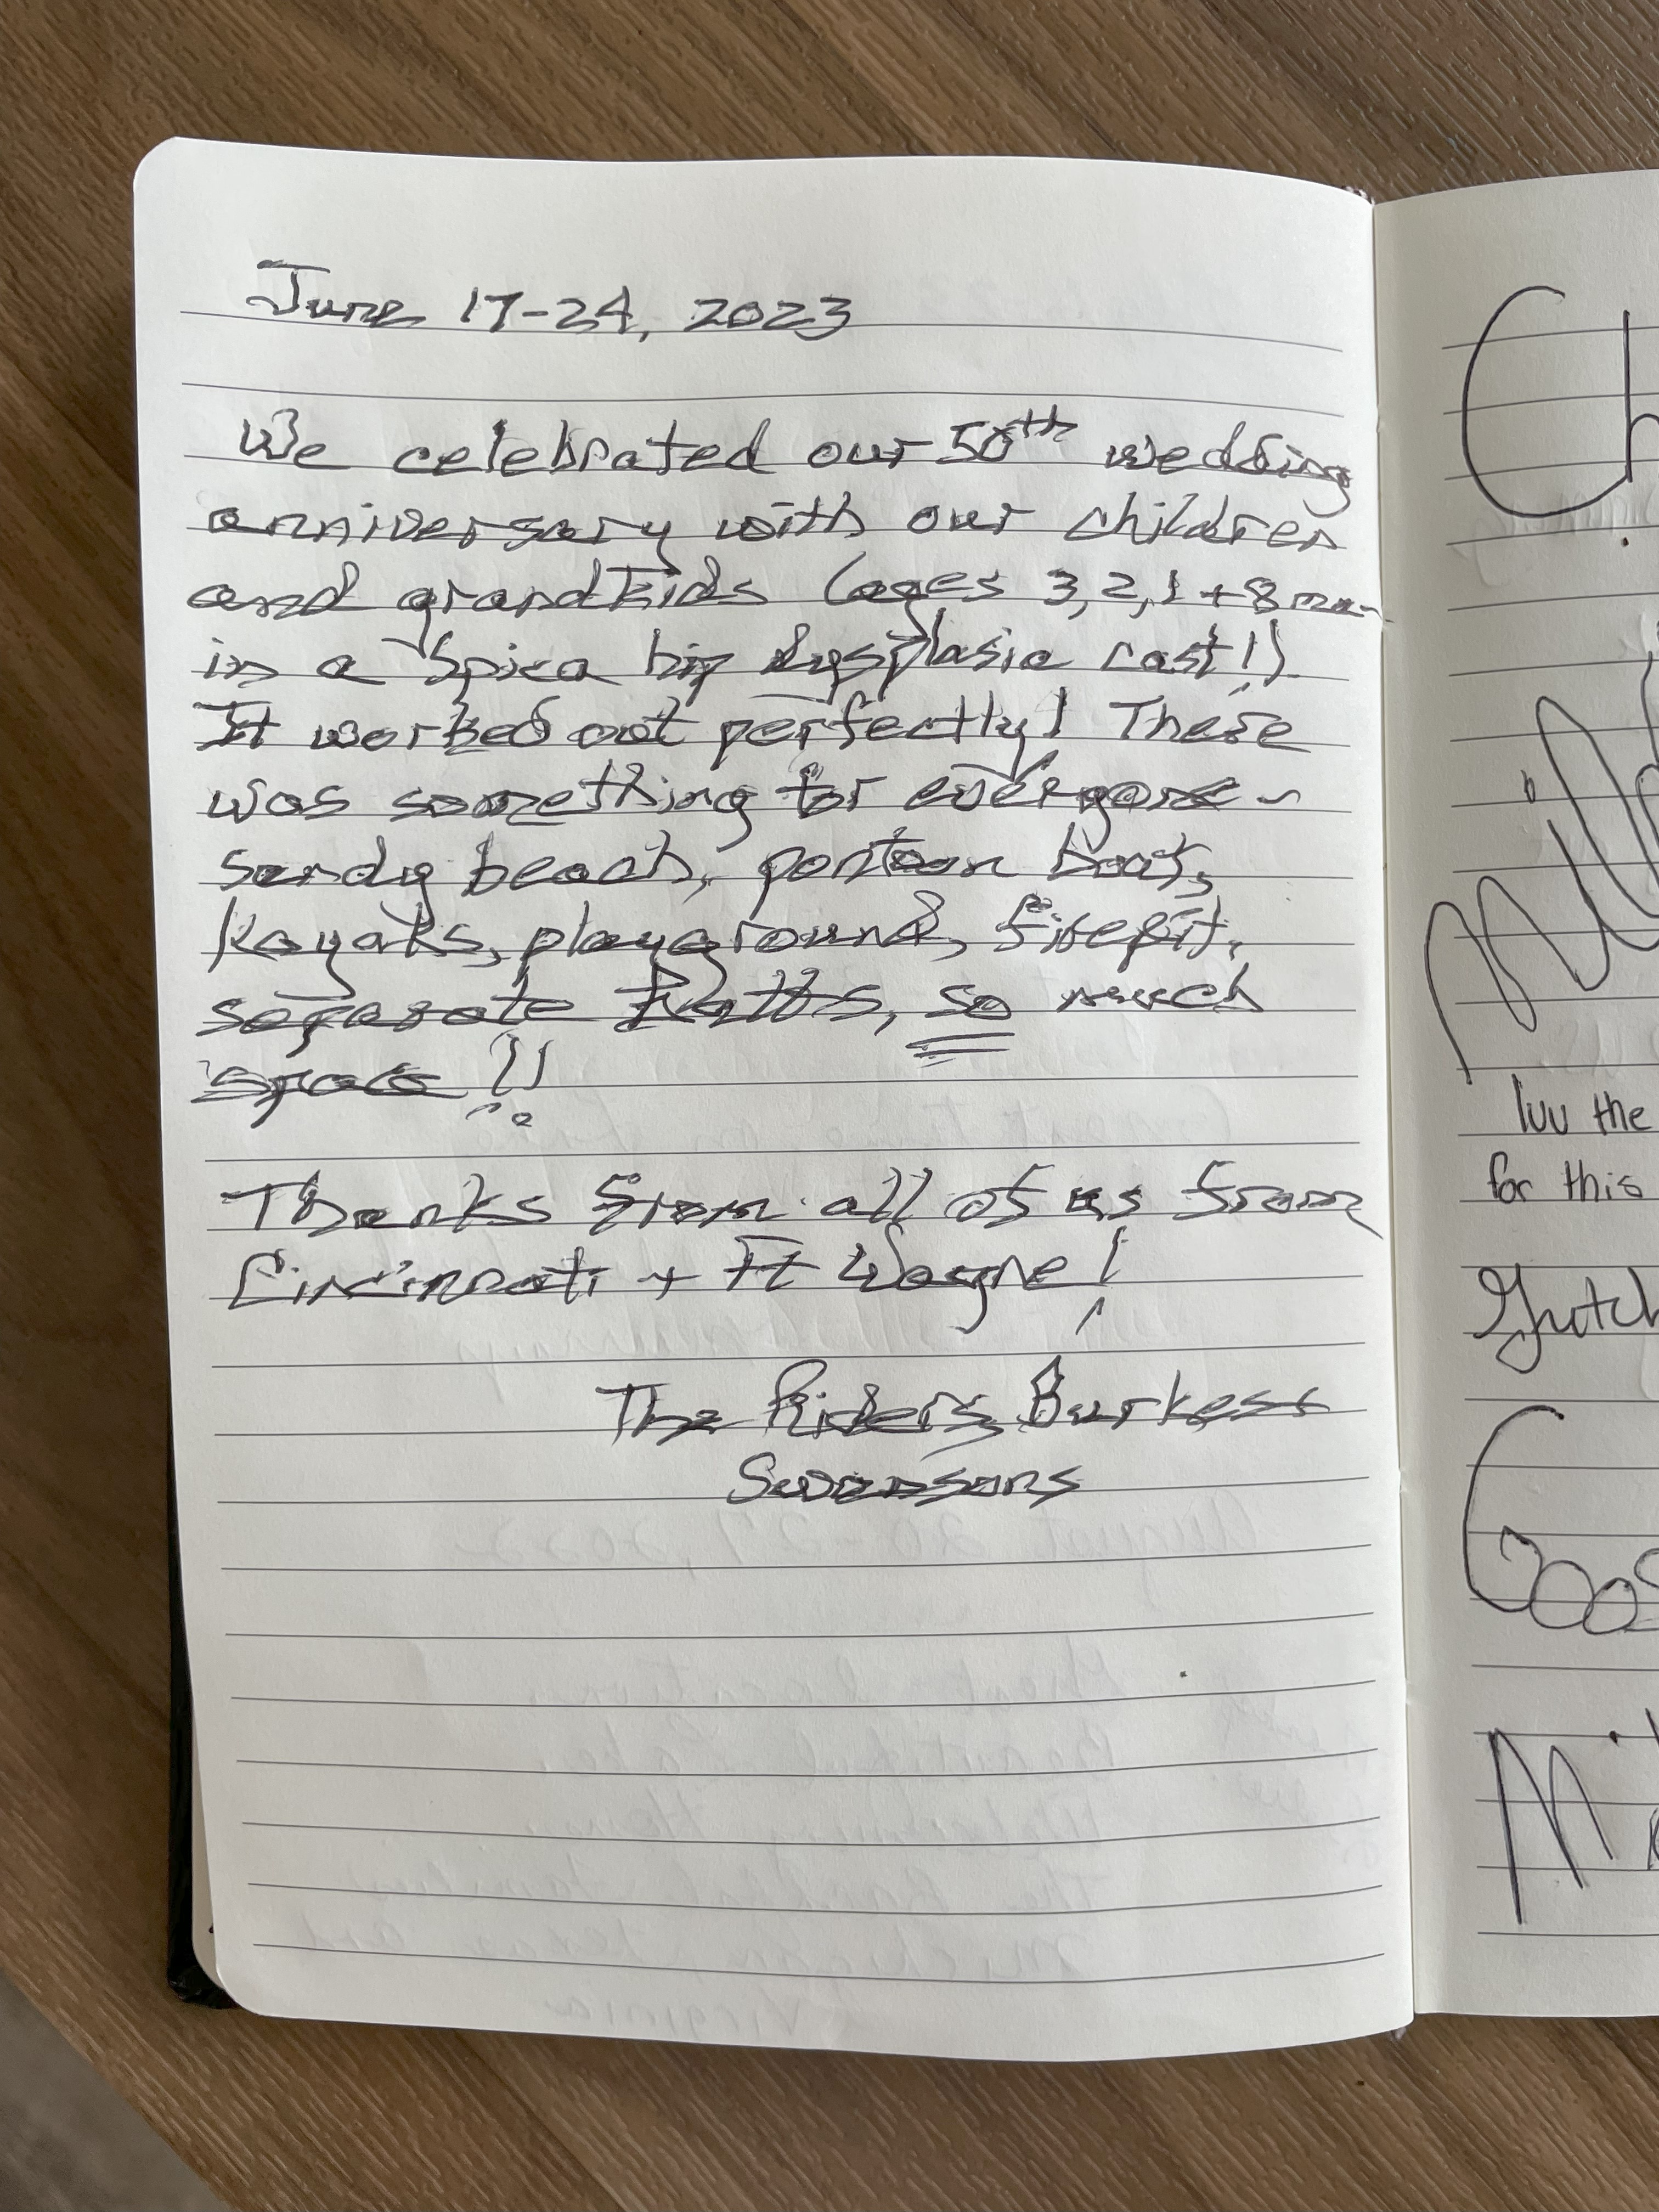 June 17-24, 2023
We celebrated our 50th wedding
anniversary with our children
and grandkids (ages 3, 2, 1 + 8 mo
in a Spica hip dysplasia cast!)
It worked out perfectly! There
was something for everyone -
sandy beach, pontoon boat,
kayaks, playground, firepit,
separate baths, so much
space!!
Thanks from all of us from
Cincinnati + Ft Wayne!
The Riders, Burkess
Swensons
luv the
for this